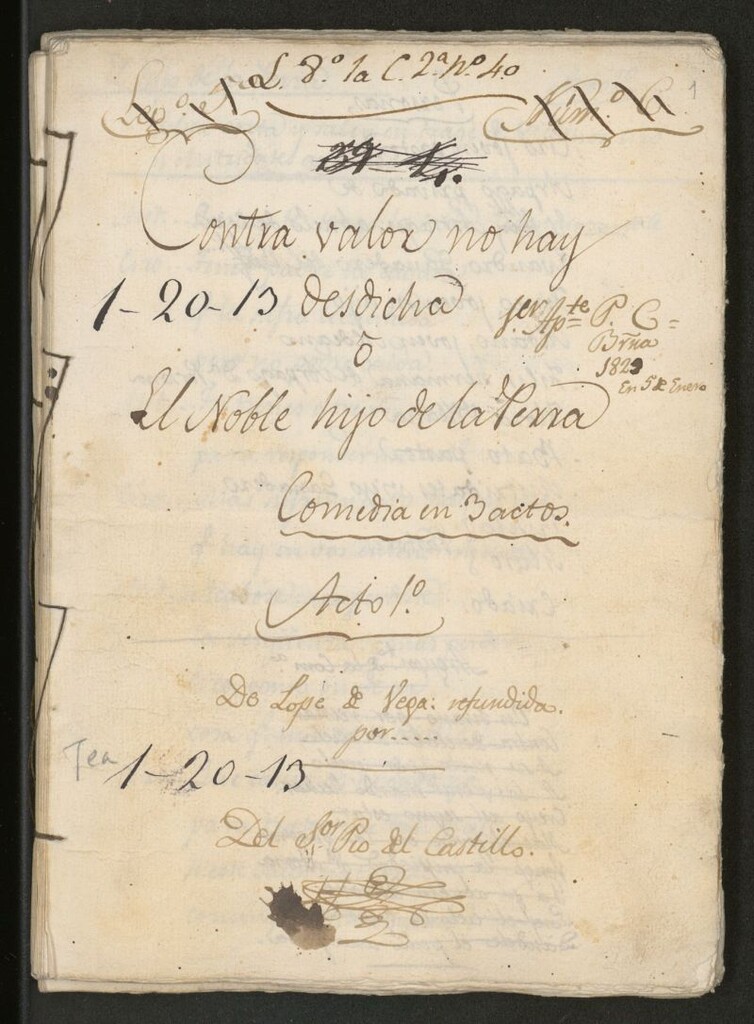 L. 8.º 1a C. 2ª nº 40
Leg.º
Núm.º 6
1
Contra valor no hay
1-20-13 desdicha
ó
El Noble hijo de la Perra
1er Apte P. C=
Bñña
1829
En 5 de Enero
Comedia en 3 actos.
Acto 1.º
De Lope de Vega: refundida.
por.....
Tea 1-20-13
Del Sor Pio del Castillo.